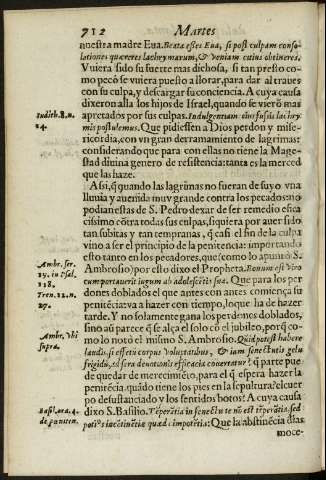 712 Martes
nuestra madre Eua. Beata esses Eua, si post culpam conso-
lationes quæreres lachrymarum, & veniam citius obtineres.
Vuiera sido su suerte mas dichosa, si tan presto co-
mo pecó se vuiera puesto a llorar, para dar al traues
con su culpa, y descargar su conciencia. A cuya causa
dixeron alla los hijos de Israel, quando se vierõ mas
Iudith. 8. n.
14.
apretados por sus culpas. Indulgentiam eius fusis lachry
mis postulemus. Que pidiessen a Dios perdon y mise-
ricordia, con vn gran derramamiento de lagrimas:
considerando que para con ellas no tiene la Mage-
stad diuina genero de resistencia: tanta es la merced
que las haze.
Assi, q̃ quando las lagrimas no fueran de suyo vna
lluuia y auenida muy grande contra los pecados: no
podian estas de S. Pedro dexar de ser remedio efica
cissimo cõtra todas sus culpas, siquiera por auer sido
tan subitas y tan tempranas, q̃ casi el fin de la culpa
vino a ser el principio de la penitencia: importando
esto tanto en los pecadores, que (como lo apuntò S.
Ambr. ser.
19. in Psal.
118.
Tren. 12. n.
27.
Ambrosio) por esto dixo el Propheta. Bonum est viro
cum portauerit iugum ab adolescẽtia sua. Que para los per
dones doblados el que antes con antes comiença su
penitẽcia va a hazer con tiempo, lo que ha de hazer
tarde. Y no solamente gana los perdones doblados,
sino aũ parece q̃ se alça el solo cõ el jubileo, porq̃ co-
Ambr. vbi
supra.
mo lo notò el mismo S. Ambrosio. Quid potest habere
laudis, si effœti corpus voluptatibus, & iam senectutis gelu
frigidũ, ad sera deuotionis efficacia conuertatur? q̃ parte pue
de quedar de merecimiẽto, para el q̃ espera hazer la
penitẽcia, quãdo tiene los pies en la sepultura? el cuer
po desustanciado y los sentidos botos? A cuya causa
Basil. ora. 4.
de pœniten.
dixo S. Basilio. Tẽperãtia in senectute nõ est tẽperãtia, sed
potius incõtinẽtiæ quædã impotẽtia: Que la abstinẽcia d̃ las
moce-